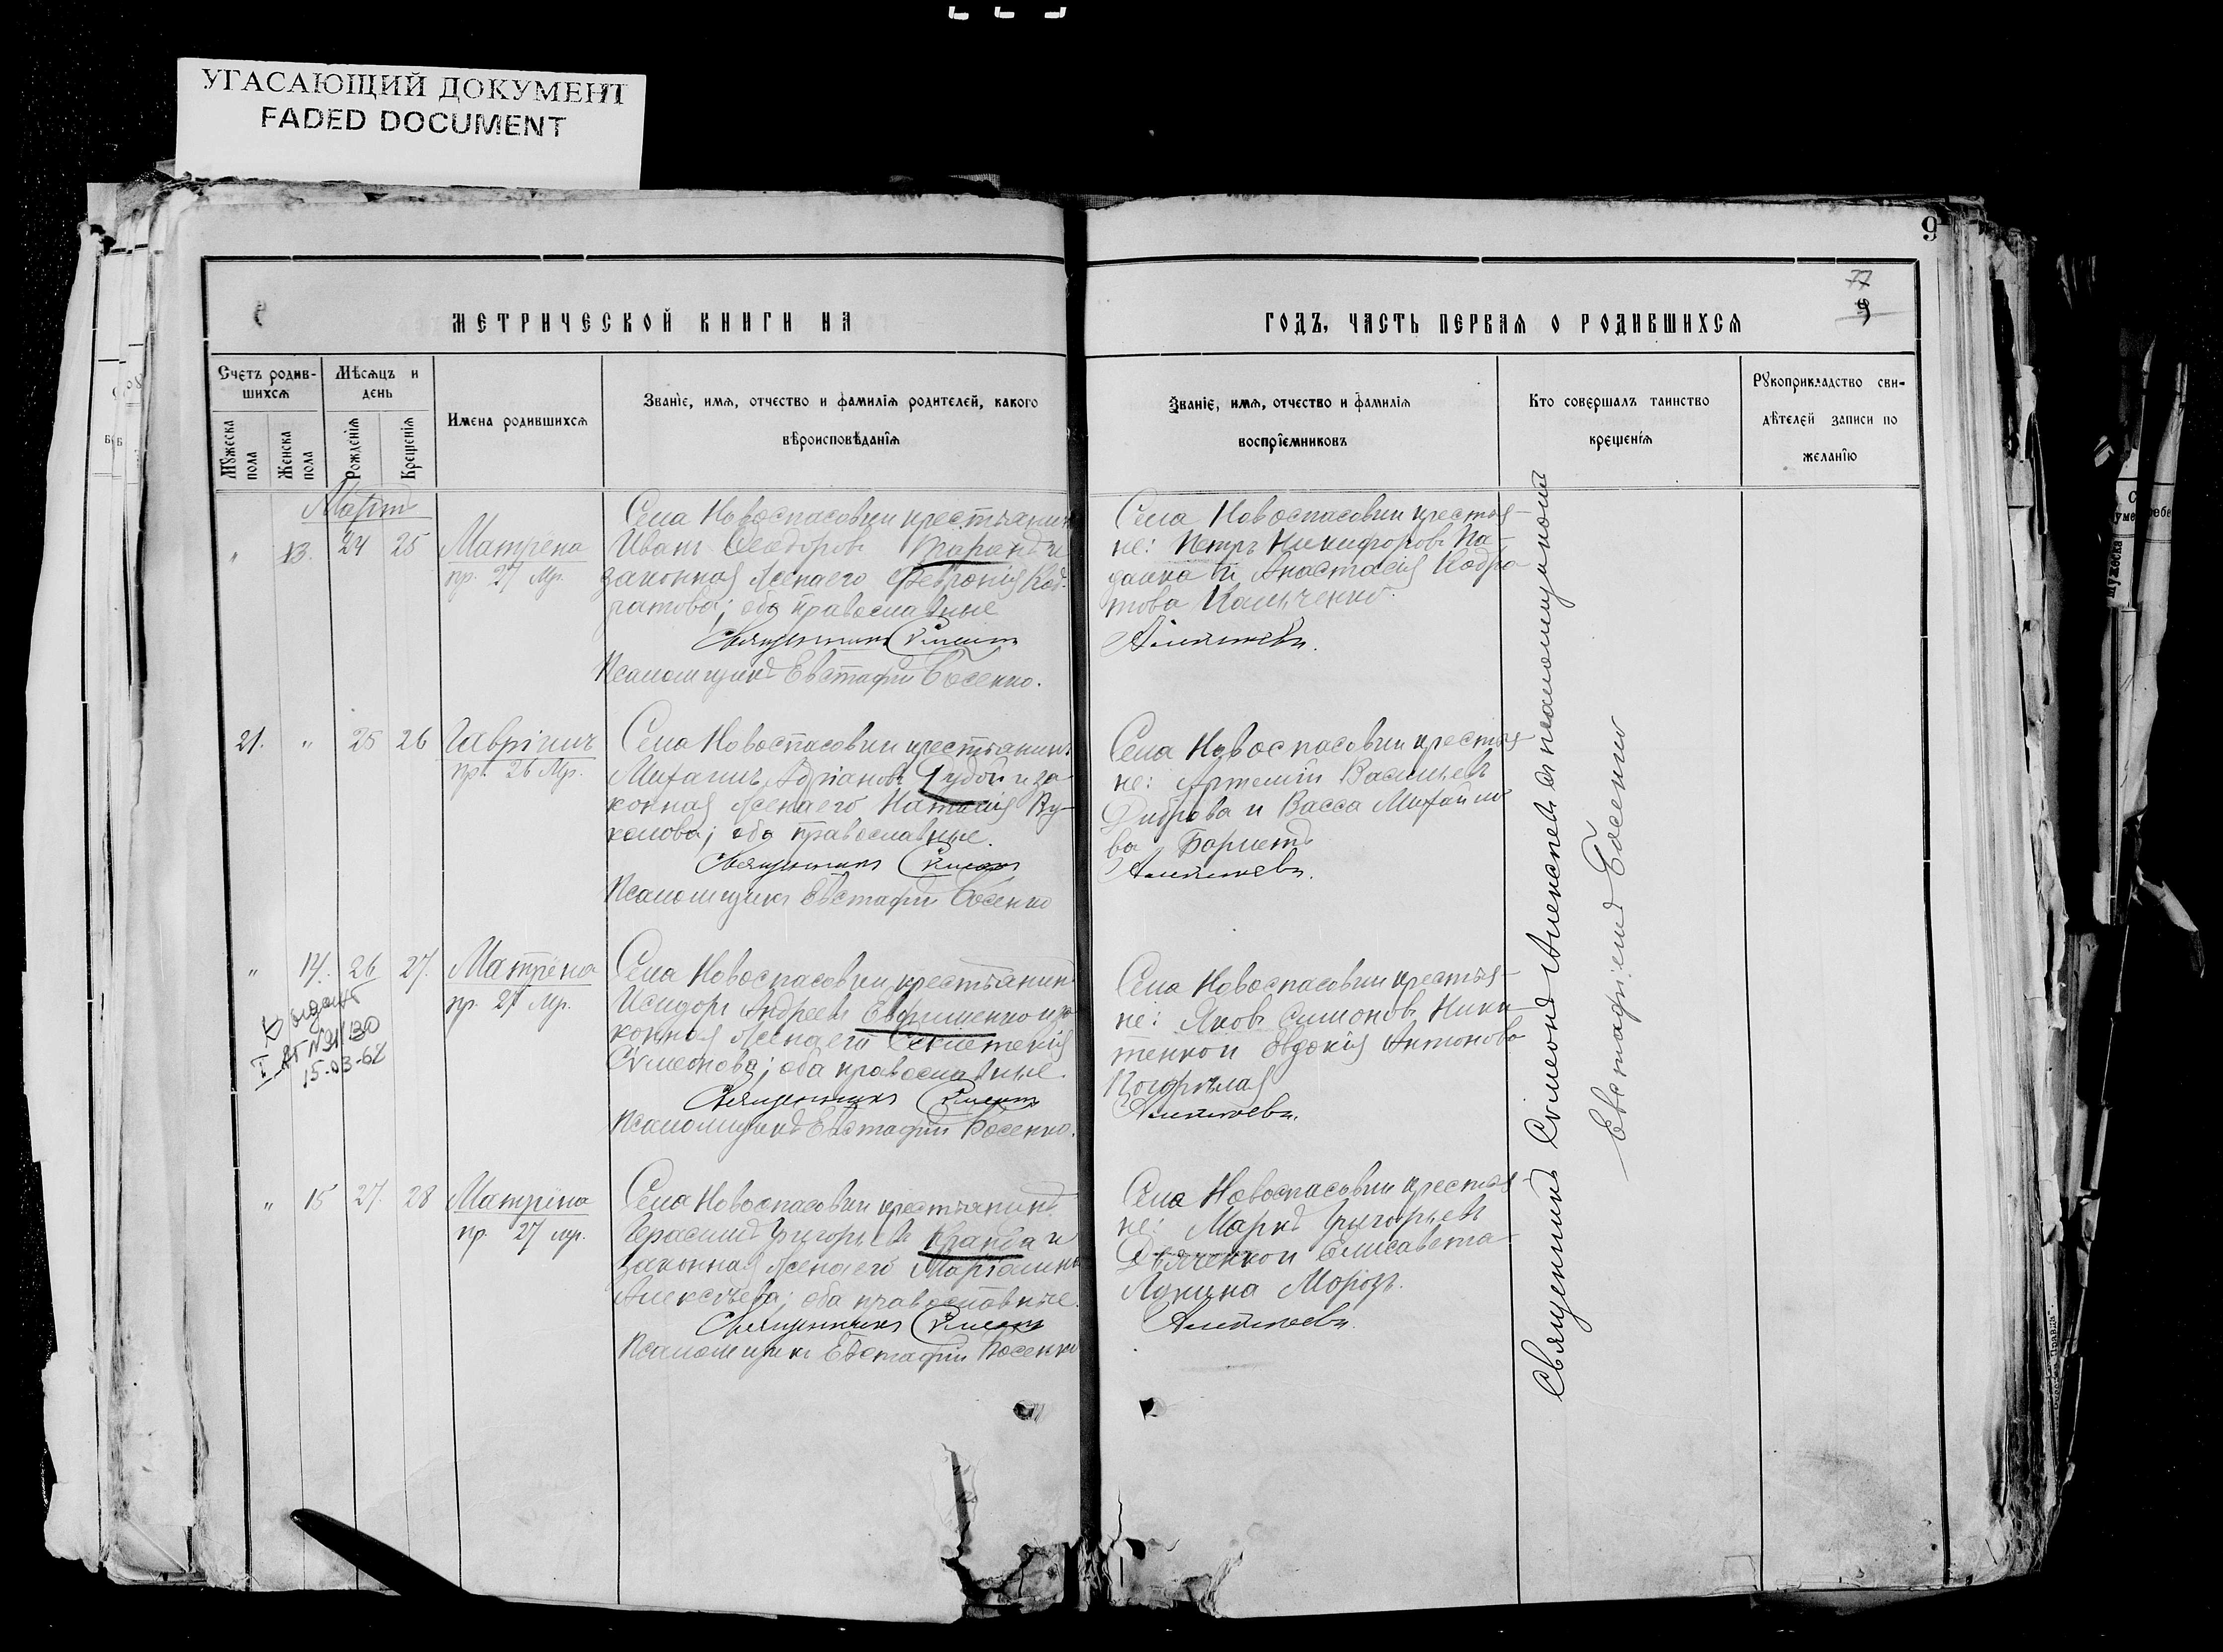 УГАСАЮЩИЙ ДОКУМЕНТ
FADED DOCUMENT
9
77
9
МЕТРИЧЕСКОЙ КНИГИ НА
ГОДЪ, ЧАСТЬ ПЕРВАЯ О РОДИВШИХСЯ
Счетъ родив-
шихся
Мужеска
пола
Женска
пола
Мѣсяцъ и
день
Рожденія
Крещенія
Имена родившихся
Званіе, имя, отчество и фамилія родителей, какого
вѣроисповѣданія
Званіе, имя, отчество и фамилія
воспріемниковъ
Кто совершалъ таинство
крещенія
Рукоприкладство сви-
дѣтелей записи по
желанію
Мартъ
" 13. 24 25
Матрена
пр. 27 Мр.
Села Новоспасовки крестьянинъ
Иванъ Ѳеодоровъ и
законная жена его Февронія Код-
ратова; оба православные
Священникъ Сѵмеонъ
Псаломщикъ Евстафій Босенко.
Села Новоспасовки крестья-
не: Петръ Никифоровъ Па-
далка и Анастасія Кодра-
това Ильченко.
Алексѣевъ.
21. " 25 26
Гавріилъ
пр. 26 Мр.
Села Новоспасовки крестьянинъ
Михаилъ Адріановъ и за-
конная жена его Наталія Ву-
колова; оба православные.
Священникъ Сѵмеонъ
Псаломщикъ Евстафій Босенко
Села Новоспасовки крестья-
не: Артемій Васильевъ
Диброва и Васса Михайло-
ва
Алексѣевъ.
" 14. 26 27.
Матрёна
пр. 27 Мр.
15-03-62
Села Новоспасовки крестьянинъ
Исидоръ Андреевъ Евфименко и за-
конная жена его
Сѵмеонова; оба православные.
Священникъ Сѵмеонъ
Псаломщикъ Евстафій Босенко.
Села Новоспасовки крестья-
не: Яковъ Симоновъ Ники-
тенко и Евдокія Антонова
Погорѣлая
Алексѣевъ.
" 15 27. 28
Матрёна
пр. 27 мр.
Села Новоспасовки крестьянинъ
Герасимъ Григорьевъ и
законная жена его Маріамна
Алексѣева; оба православные.
Священникъ Сѵмеонъ
Псаломщикъ Евстафій Босенко
Села Новоспасовки крестья-
не: Маркъ Григорьевъ
Дьяченко и Елисавета
Лукина Морозъ.
Алексѣевъ.
Священникъ Сѵмеонъ Алексѣевъ съ псаломщикомъ
Евстафіемъ Босенко